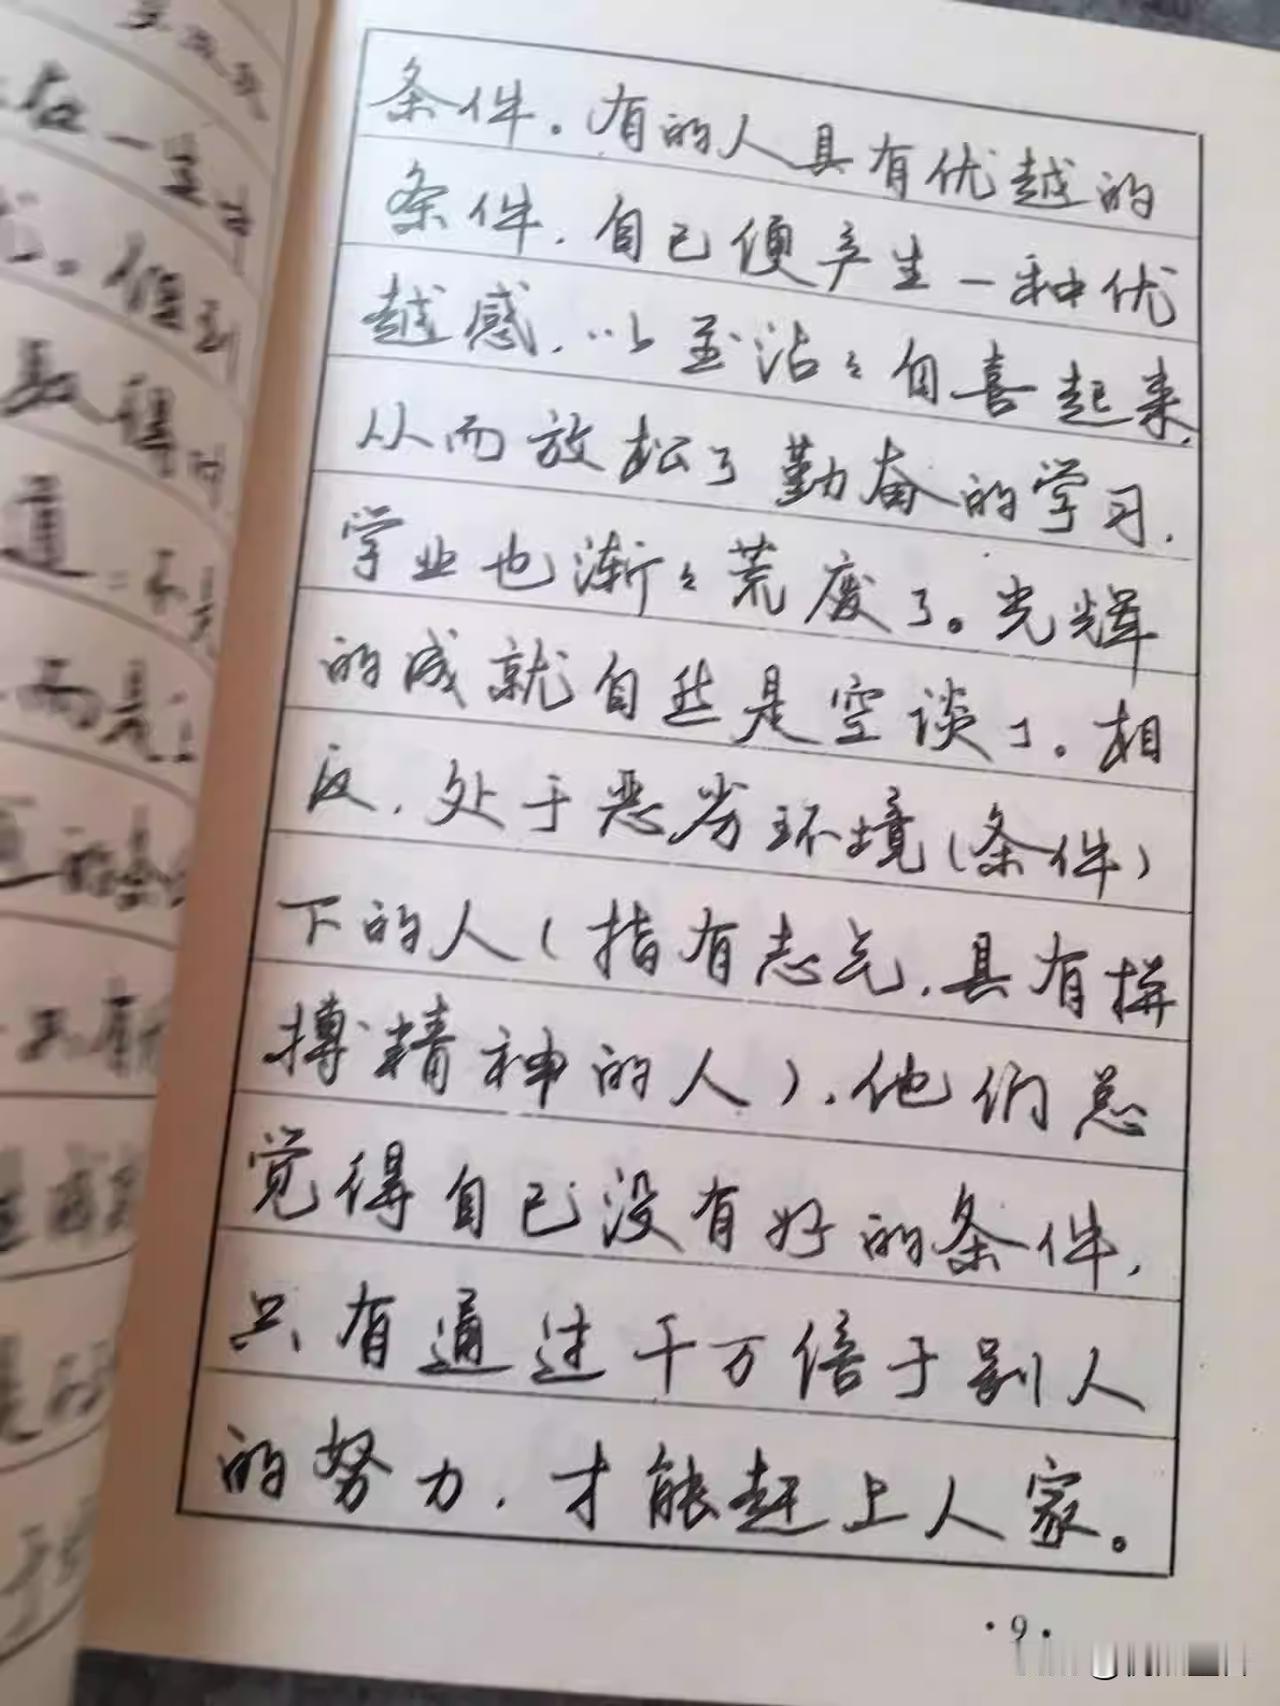 条件。有的人具有优越的
条件，自己便产生一种优
越感，以至沾々自喜起来，
从而放松了勤奋的学习，
学业也渐々荒废了。光辉
的成就自然是空谈了。相
反，处于恶劣环境（条件）
下的人（指有志气，具有拼
搏精神的人），他们总
觉得自己没有好的条件，
只有通过千万倍于别人
的努力，才能赶上人家。
·9·
在一生中
。但到
取得
道
而是